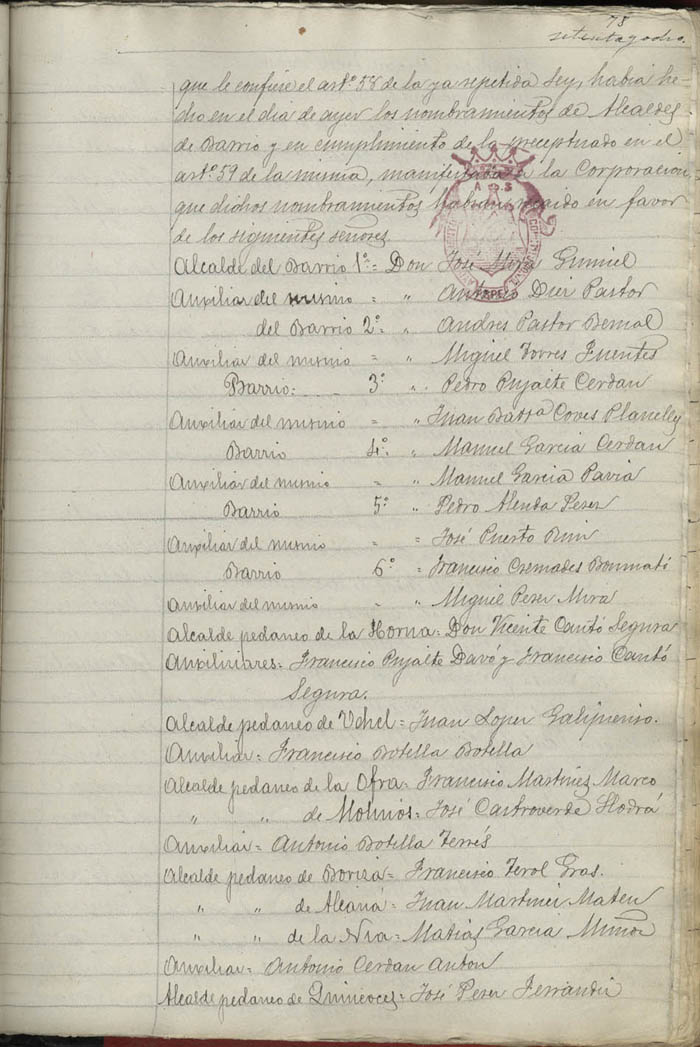 78
setenta y ocho.
que le confiere el artº 58 de la ya repetida Ley, habia he-
cho en el dia de ayer los nombramientos de Alcaldes
de Barrio y en cumplimiento de lo preceptuado en el
artº 59 de la misma, manifestaba a la Corporacion
que dichos nombramientos habian recaido en favor
de los siguientes señores
Alcalde del Barrio 1º = Don José Mira Gumiel
Auxiliar del mismo = " Antonio Dier Pastor
del Barrio 2º " Andres Pastor Bernal
Auxiliar del mismo = " Miguel Torres Fuentes
Barrio 3º " Pedro Pujalte Cerdan
Auxiliar del mismo = " Juan Batta Coves Planelles
Barrio 4º " Manuel Garcia Cerdan
Auxiliar del mismo = " Manuel Garcia Pavia
Barrio 5º " Pedro Alenda Perez
Auxiliar del mismo = = José Puerto
Barrio 6º = Francisco Cremades Bonmatí
Auxiliar del mismo " " Miguel Perez Mira
Alcalde pedaneo de la Horna = Don Vicente Cantó Segura
Auxiliares = Francisco Pujalte Davó y Francisco Cantó
Segura.
Alcalde pedaneo de Uchel = Juan Lopez Galipienso.
Auxiliar = Francisco Botella Botella
Alcalde pedaneo de la Ofra = Francisco Martinez Marco
" " de Molinos = José Castroverde
Auxiliar = Antonio Botella Terrés
Alcalde pedaneo de = Francisco Terol Gras.
" " de Alcaná = Juan Martinez Mateu
" " de la Nia = Matias Garcia Muñoz
Auxiliar = Antonio Cerdan Anton
Alcalde pedaneo de = José Perez Ferrandiz